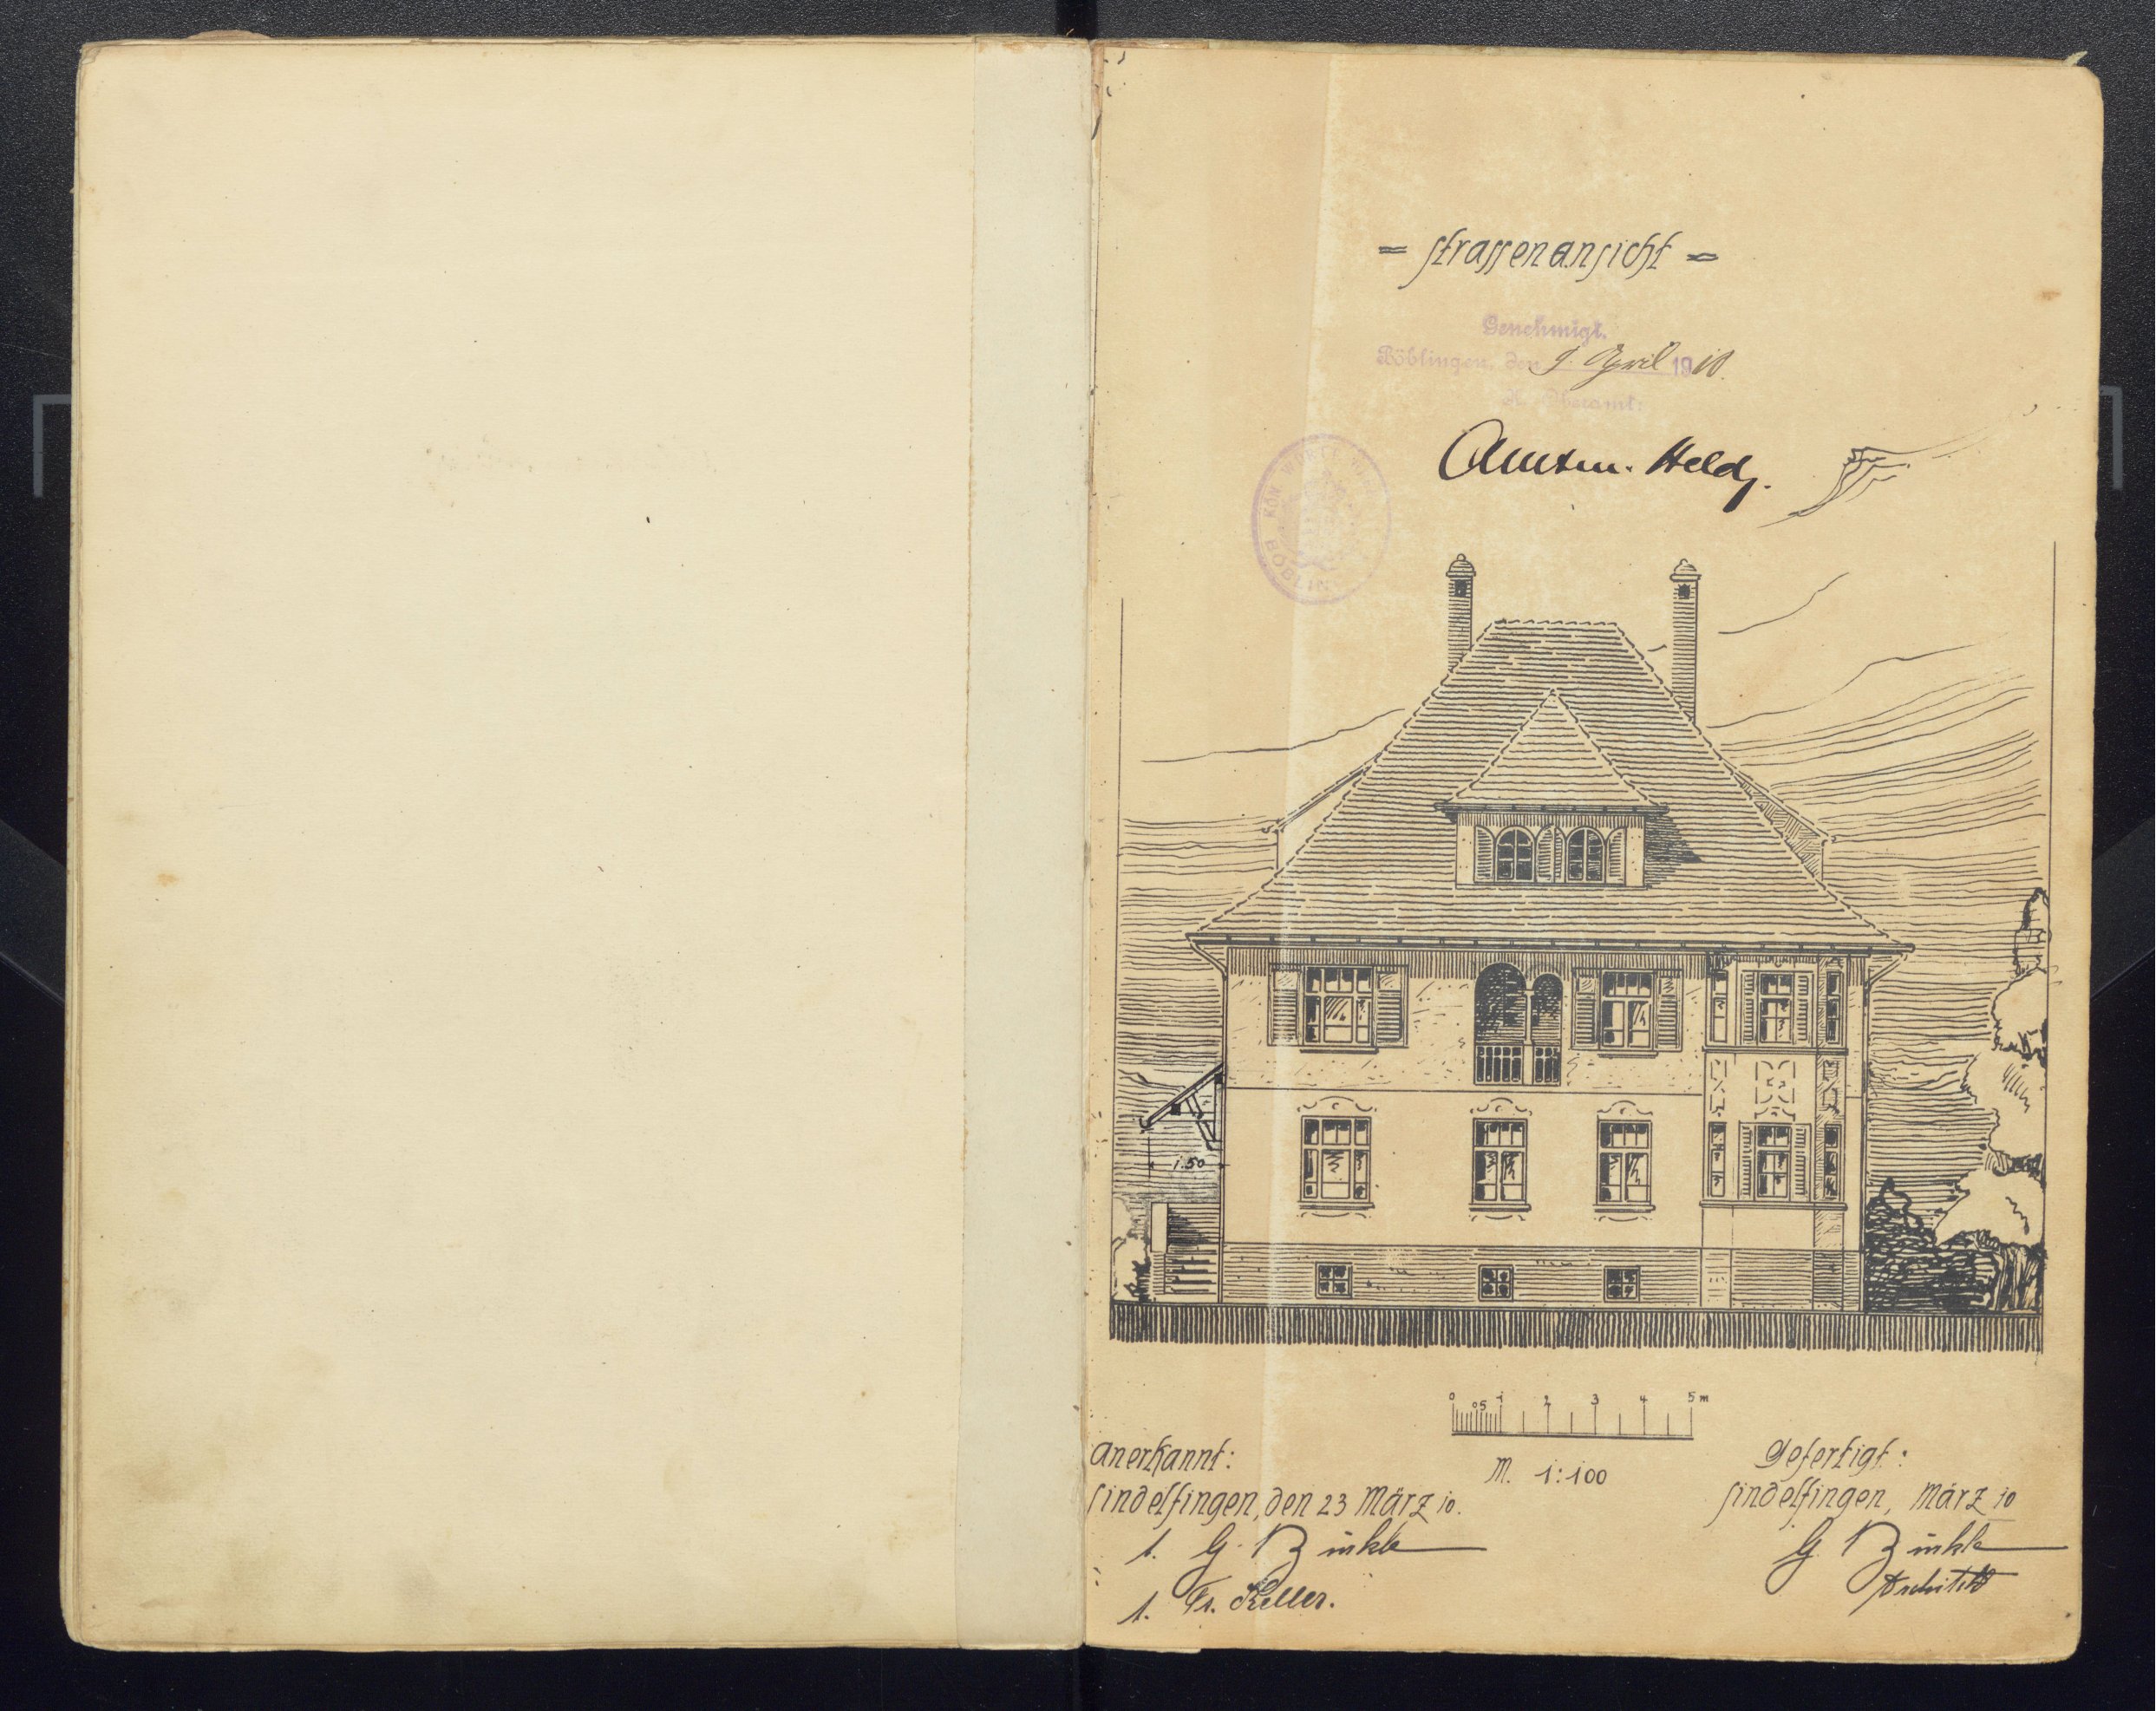 = Strassenansicht =
Genehmigt.
Böblingen, den 9. April 1910.
K. Oberamt:
Amtm. Held.
KÖN. WÜRTT.
BÖBLIN
1.50
0 05 1 2 3 4 5 m
M. 1:100
Anerkannt:
Sindelfingen, den 23 März 10.
1. G. Binkle
1. Fr. Keller.
Gefertigt:
Sindelfingen, März 10
G. Binkle
Architekt